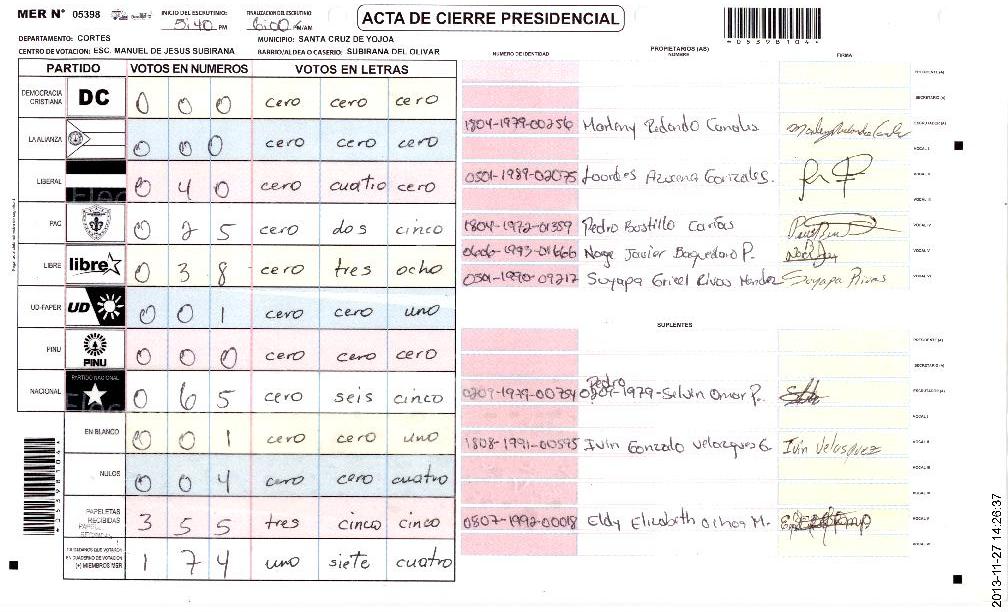 MER N° 05398
INICIO DEL ESCRUTINIO: 5:40 PM
FINALIZACION DEL ESCRUTINIO 6:00 PM/AM
ACTA DE CIERRE PRESIDENCIAL
*05398104*
DEPARTAMENTO: CORTES
MUNICIPIO: SANTA CRUZ DE YOJOA
CENTRO DE VOTACION: ESC. MANUEL DE JESUS SUBIRANA
BARRIO/ALDEA O CASERIO: SUBIRANA DEL OLIVAR
PARTIDO VOTOS EN NUMEROS VOTOS EN LETRAS
DEMOCRACIA CRISTIANA DC 0 0 0 cero cero cero
LA ALIANZA 0 0 0 cero cero cero
LIBERAL 0 4 0 cero cuatro cero
PAC 0 2 5 cero dos cinco
LIBRE libre 0 3 8 cero tres ocho
UD-FAPER UD 0 0 1 cero cero uno
PINU PINU 0 0 0 cero cero cero
NACIONAL PARTIDO NACIONAL 0 6 5 cero seis cinco
EN BLANCO 0 0 1 cero cero uno
NULOS 0 0 4 cero cero cuatro
PAPELETAS RECIBIDAS 3 5 5 tres cinco cinco
CIUDADANOS QUE VOTARON EN CUADERNO DE VOTACION (+) MIEMBROS MER 1 7 4 uno siete cuatro
*05398104*
PROPIETARIOS (AS)
NUMERO DE IDENTIDAD NOMBRE FIRMA
PRESIDENTE (A)
SECRETARIO (A)
1804-1979-00256 Marleny Redondo Canales ESCRUTADOR (A)
VOCAL I
0501-1989-02075 Lourdes Azucena Gonzales. VOCAL II
VOCAL III
1804-1972-01359 Pedro Bustillo VOCAL IV
Javier Baquedano P. VOCAL V
0501-1990-09217 Suyapa Rivas Suyapa Rivas VOCAL VI
SUPLENTES
PRESIDENTE (A)
SECRETARIO (A)
Pedro
1979-Selvin Omar P. ESCRUTADOR (A)
VOCAL I
1808-1991-00595 Ivin Gonzalo Velasquez G. Ivin Velasquez VOCAL II
VOCAL III
VOCAL IV
0807-1992-00018 Eldy Elizabeth Ochoa M. VOCAL V
VOCAL VI
2013-11-27 14:26:37